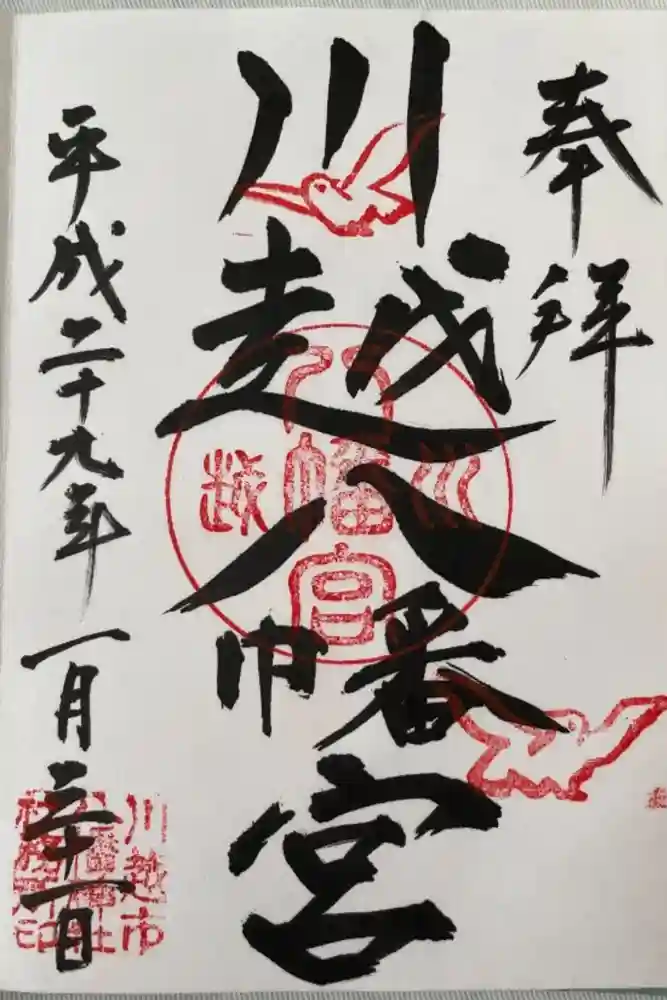 奉拝
川越八幡宮
平成二十九年一月三十一日
川越
八幡宮
川越市
八幡神社
社務所印